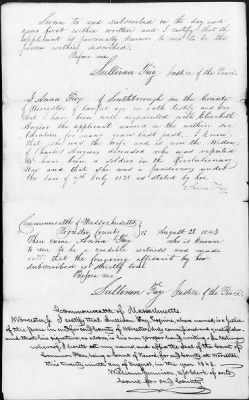 Sworn to and subscribed in the day and
year first within written and I certify that the
applicant is personally known to me to be the
person within described.
Before me
Sullivan Fay Justice of the Peace
I Anna Fay of Southborough in the County
of Worcester of lawful age do hereby testify and say
that I have been well acquainted with Elizabeth
Angier the applicant named in the within declaration
for many years last past. I know
that she was the wife and is now the Widow
of Angier deceased who was reputed
to have been a soldier in the Revolutionary
War and that she was a pensioner under
the law of 7th July 1838 as stated by her
Anna Fay
Commonwealth of Massachusetts
Worcester County ss August 28 1843
Then came Anna Fay who is known
to me to be a credible witness and made
oath that the foregoing affidavit by her
subscribed is strictly true
Before me
Sullivan Fay Justice of the Peace
Commonwealth of Massachusetts
Worcester, ss I certify that Sullivan Fay Esquire, above named, is a Justice
of the Peace in and for said County of Worcester, duly commissioned and qualified
and that his signature as above is his own. In testimony
whereof I hereto set my name and affix the Seal of the Court of
Common Pleas, being a Court of Record, for said County at Worcester
this twenty ninth day of August, in the year 1843.
Clerk of said
Court for said County